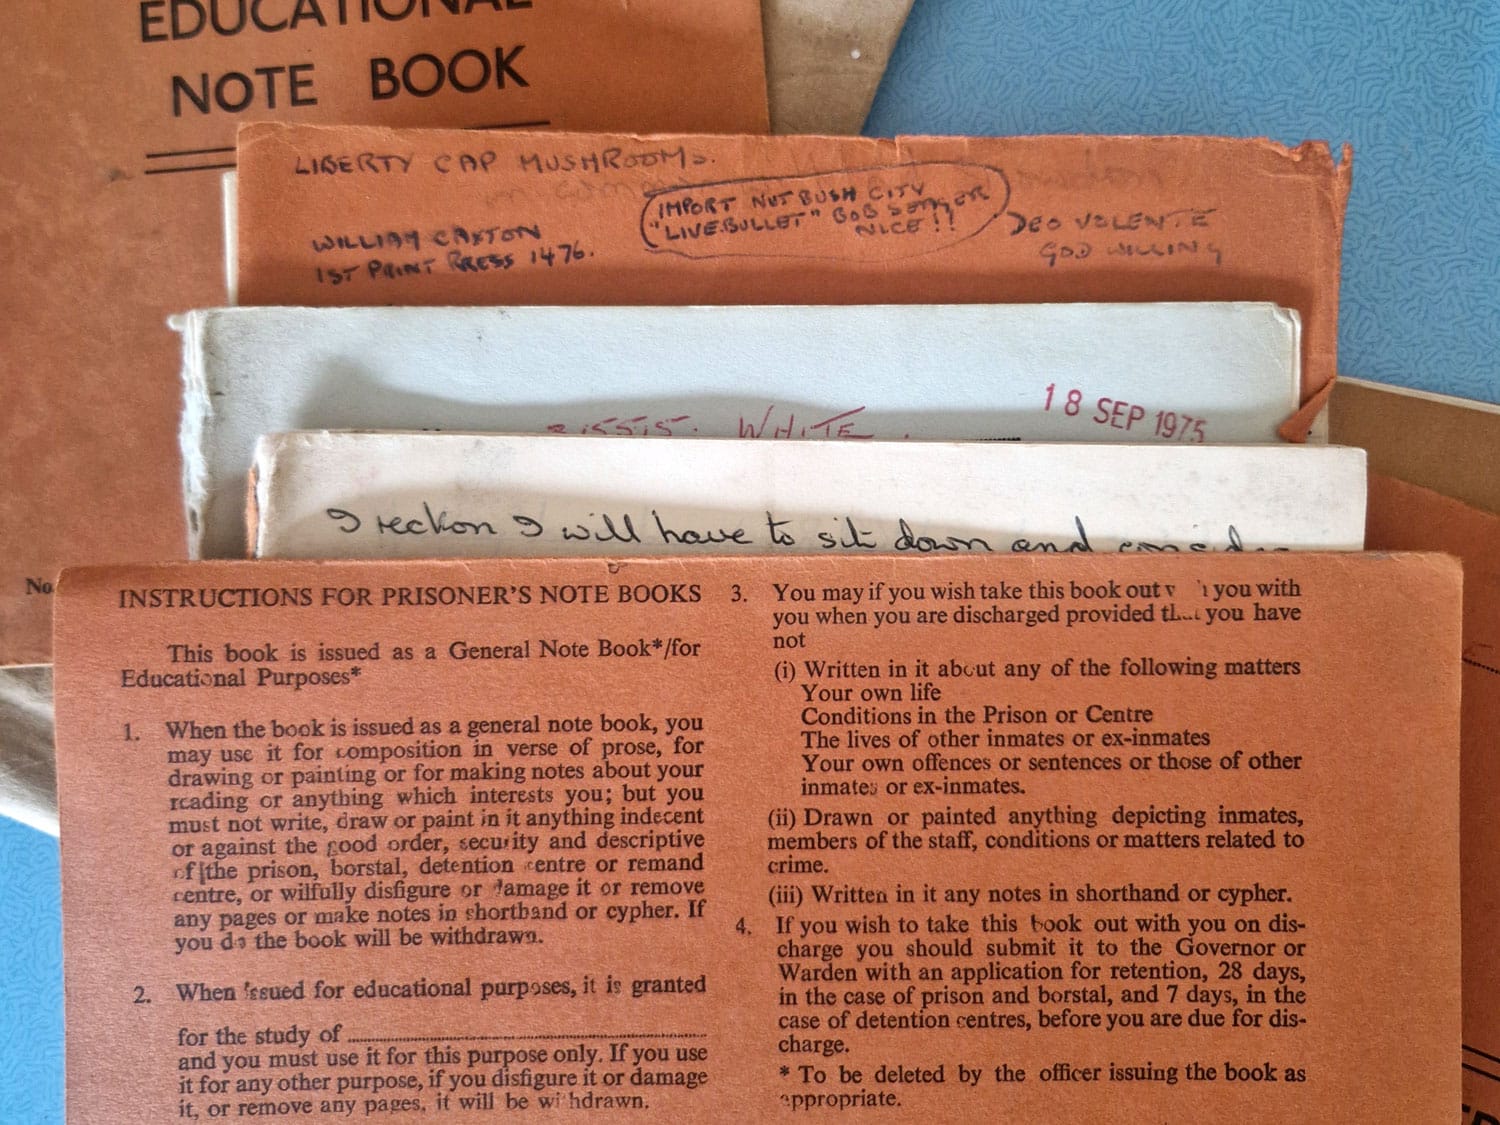 EDUCATIONAL
NOTE BOOK
LIBERTY CAP MUSHROOMS.
IMPORT NUTBUSH CITY
"LIVE BULLET" BOB SEAGER
NICE!!
WILLIAM CAXTON
1ST PRINT PRESS 1476.
DEO VOLENTE
GOD WILLING
18 SEP 1975
WHITE.
I reckon I will have to sit down and consider
No.
INSTRUCTIONS FOR PRISONER'S NOTE BOOKS
This book is issued as a General Note Book*/for
Educational Purposes*
1. When the book is issued as a general note book, you
may use it for composition in verse of prose, for
drawing or painting or for making notes about your
reading or anything which interests you; but you
must not write, draw or paint in it anything indecent
or against the good order, security and descriptive
of the prison, borstal, detention centre or remand
centre, or wilfully disfigure or damage it or remove
any pages or make notes in shorthand or cypher. If
you do the book will be withdrawn.
2. When issued for educational purposes, it is granted
for the study of
and you must use it for this purpose only. If you use
it for any other purpose, if you disfigure it or damage
it, or remove any pages, it will be withdrawn.
3. You may if you wish take this book out with you with
you when you are discharged provided that you have
not
(i) Written in it about any of the following matters
Your own life
Conditions in the Prison or Centre
The lives of other inmates or ex-inmates
Your own offences or sentences or those of other
inmates or ex-inmates.
(ii) Drawn or painted anything depicting inmates,
members of the staff, conditions or matters related to
crime.
(iii) Written in it any notes in shorthand or cypher.
4. If you wish to take this book out with you on dis-
charge you should submit it to the Governor or
Warden with an application for retention, 28 days,
in the case of prison and borstal, and 7 days, in the
case of detention centres, before you are due for dis-
charge.
* To be deleted by the officer issuing the book as
appropriate.